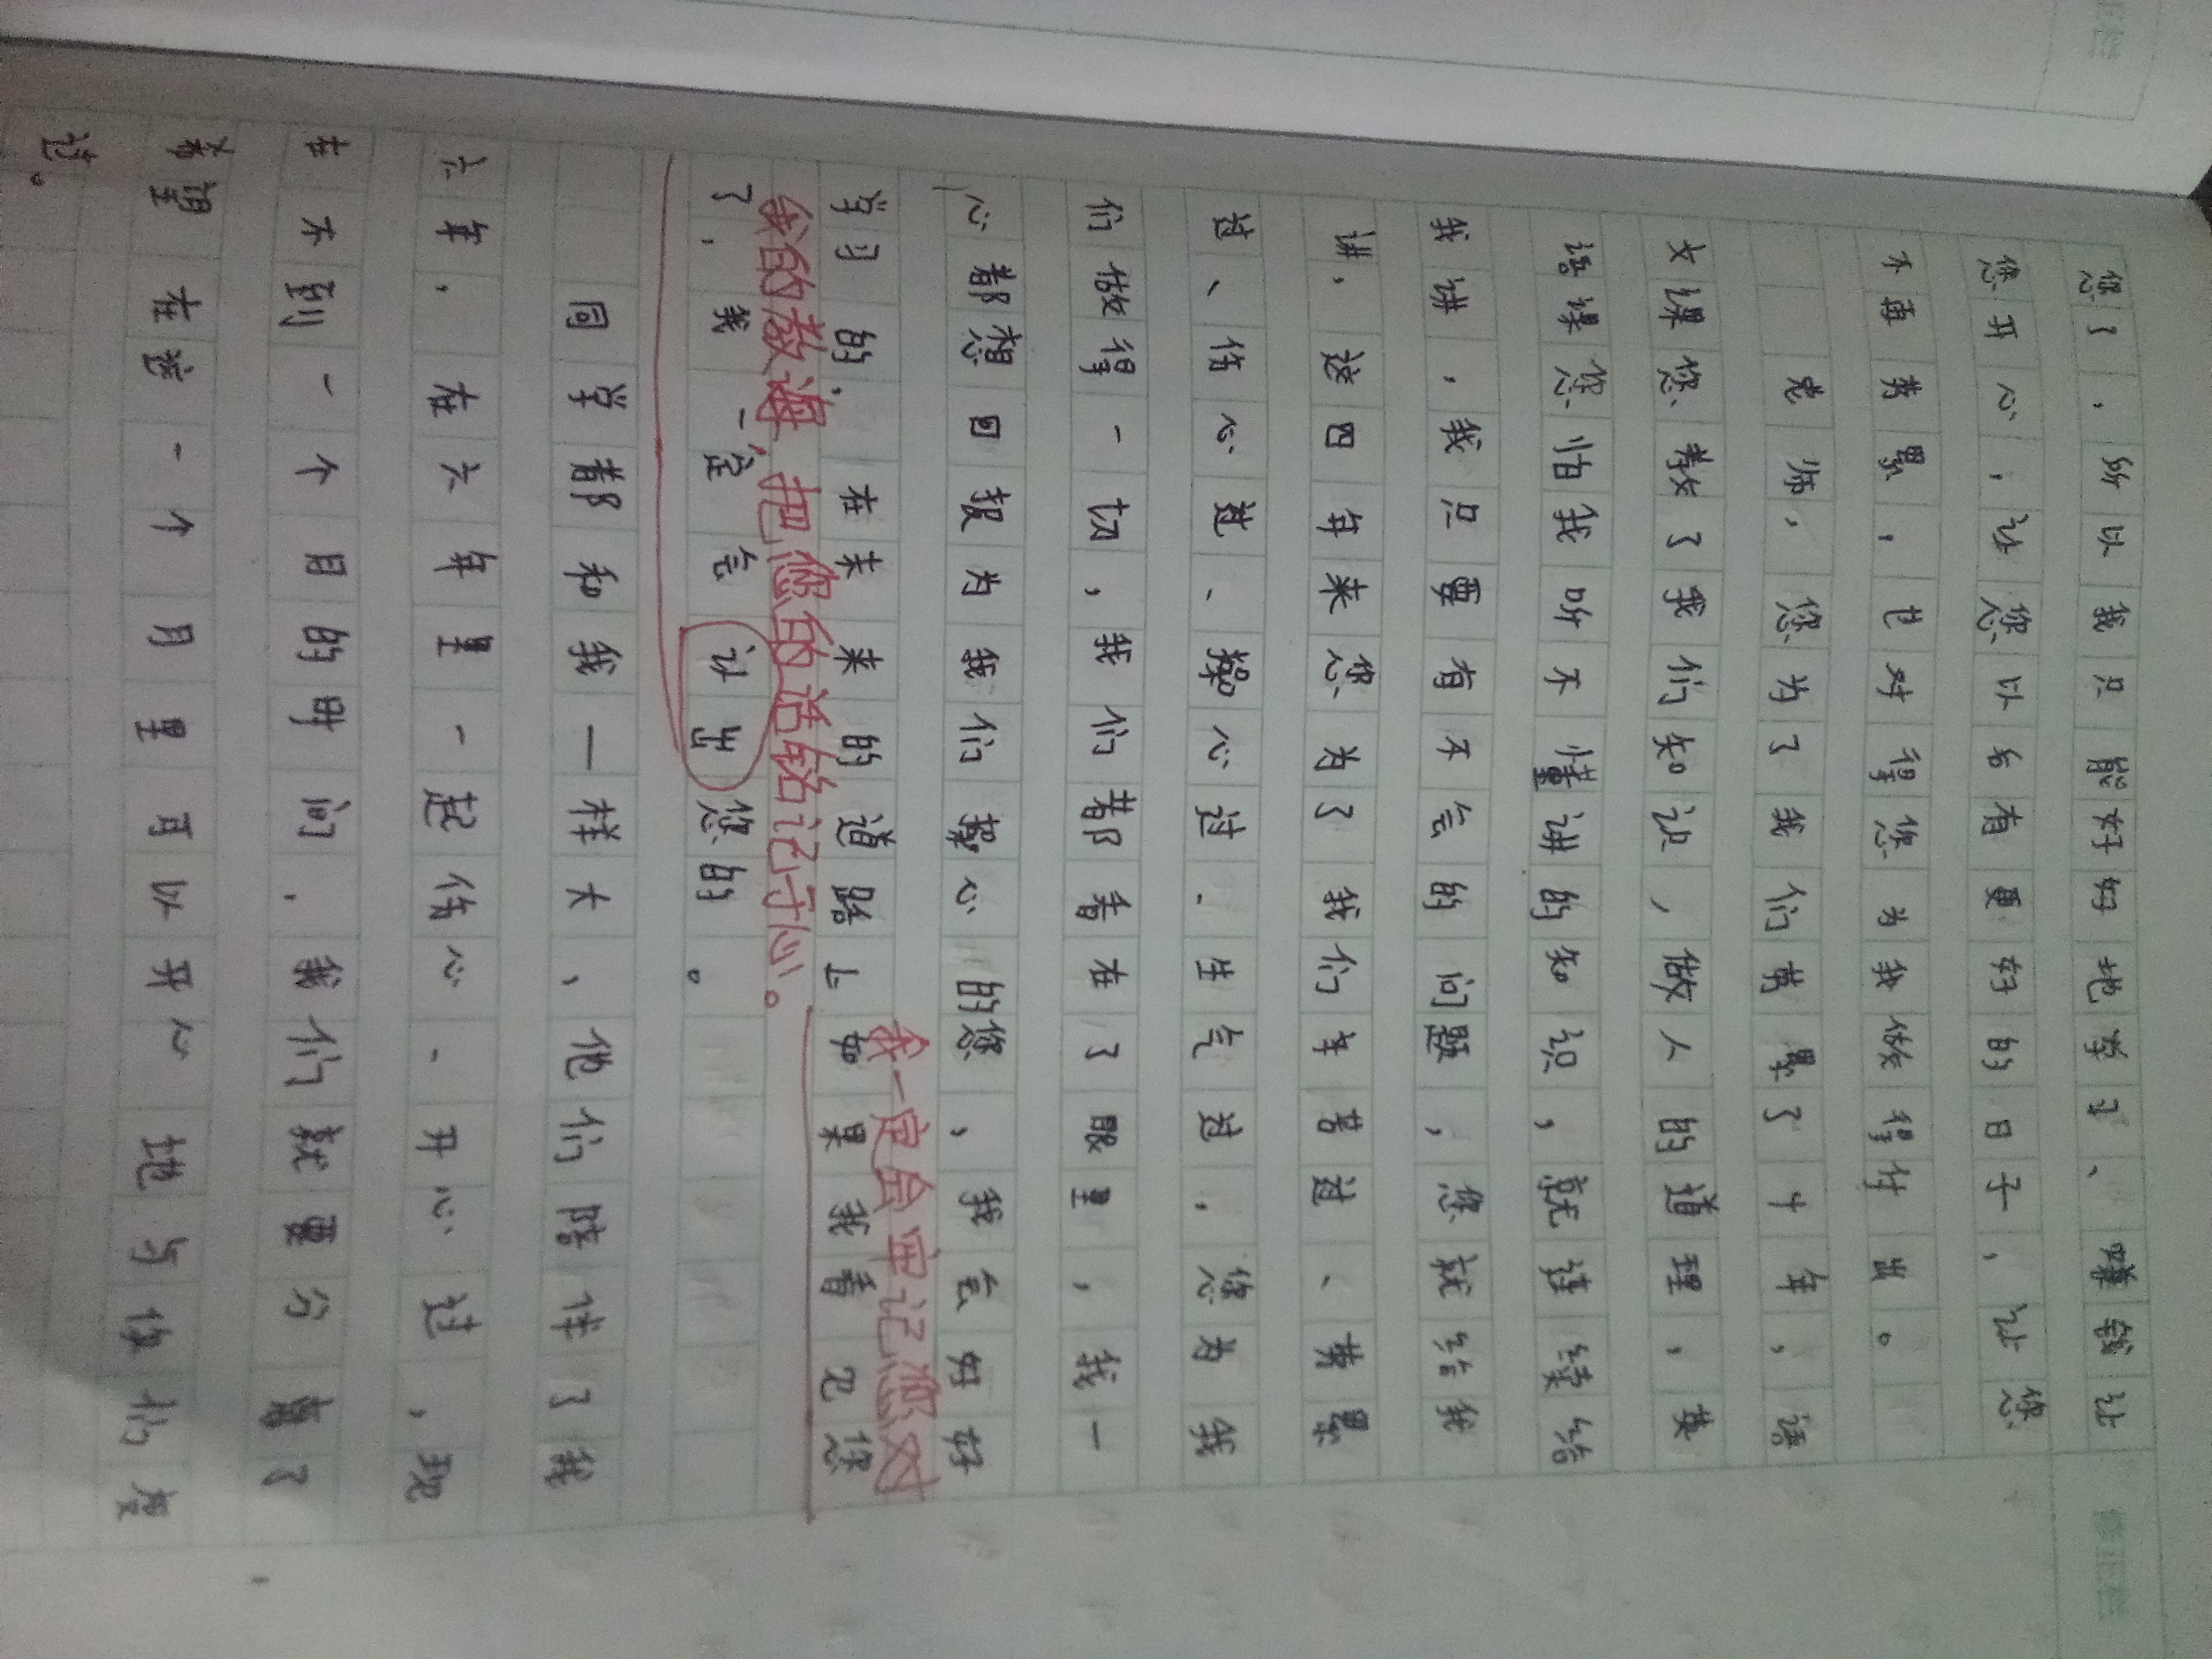 您了，所以我只能好好地学习、赚钱让
您开心，让您以后有更好的日子，让您
不再劳累，也对得您为我做得付出。
老师，您为了我们劳累了十年，语
文课您教了我们知识，做人的道理，英
语课您怕我听不懂讲的知识，就连续给
我讲，我只要有不会的问题，您就给我
讲，这四年来您为了我们辛苦过、劳累
过、伤心过、操心过、生气过，您为我
们做得一切，我们都看在了眼里，我一
心都想回报为我们操心的您，我会好好
我一定会牢记您对
学习的，在未来的道路上如果我看见您
我的教诲，把您的话铭记于心。
了，我一定会认出您的。
同学都和我一样大，他们陪伴了我
六年，在六年里一起伤心、开心过，现
在不到一个月的时间，我们就要分离了
希望在这一个月里可以开心地与你们度
过。
修正栏
修正栏